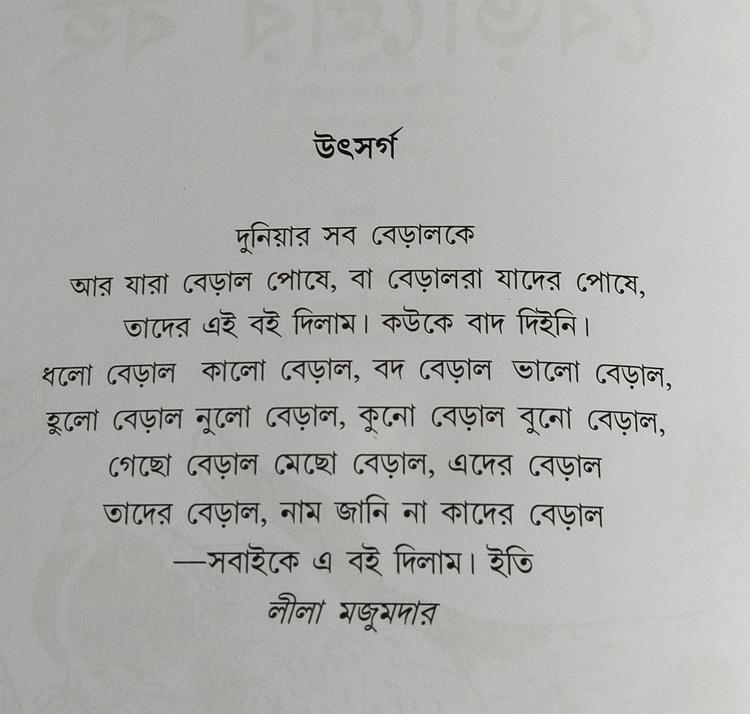 উৎসর্গ
দুনিয়ার সব বেড়ালকে
আর যারা বেড়াল পোষে, বা বেড়ালরা যাদের পোষে,
তাদের এই বই দিলাম। কউকে বাদ দিইনি।
ধলো বেড়াল কালো বেড়াল, বদ বেড়াল ভালো বেড়াল,
হুলো বেড়াল নুলো বেড়াল, কুনো বেড়াল বুনো বেড়াল,
গেছো বেড়াল মেছো বেড়াল, এদের বেড়াল
তাদের বেড়াল, নাম জানি না কাদের বেড়াল
—সবাইকে এ বই দিলাম। ইতি
লীলা মজুমদার